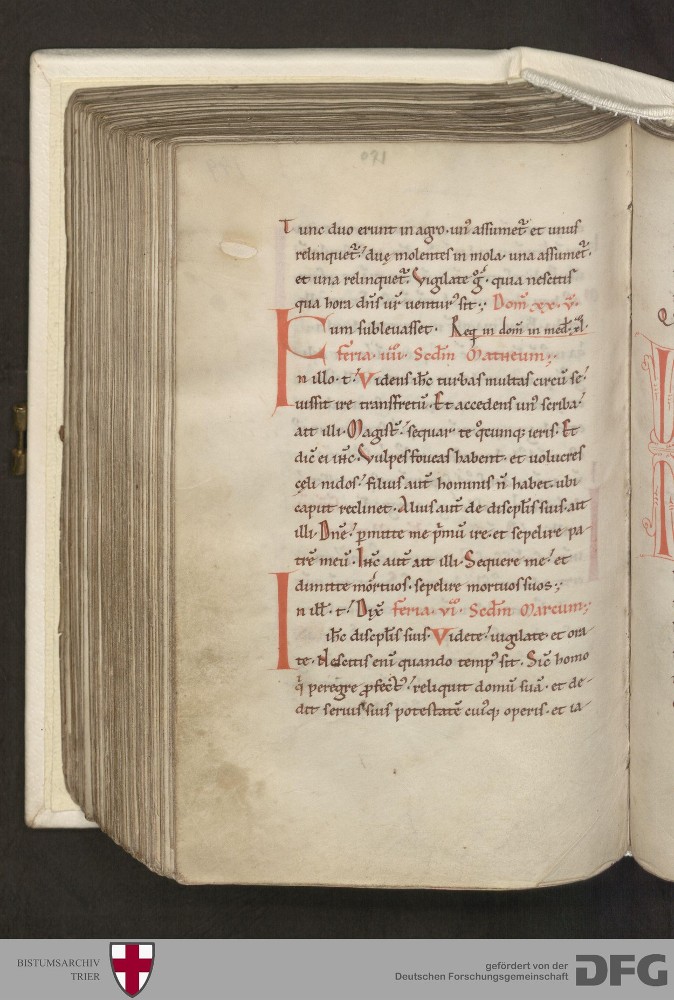 Tunc duo erunt in agro · un᾿ assumet᷑ et unus
relinquet᷑ · duę molentes in mola · una assumet᷑ ·
et una relinquet᷑ · Vigilate g̊ · quia nescitis
qua hora dn̄s ur̄ ventur᾿ sit ·, Dom̄ xx · v ·
Cum sublevasset · Req̄ in dom̄ in med̄ · xl ·
feria · iiii · Scd̄m Matheum ·,
In illo · t · Videns ih̄c turbas multas circū se ·
iussit ire transfretū · Et accedens un᾿ scriba ·
ait illi · Magist̄ · sequar te q̊cumq; ieris · Et
dic̄ ei ih̄c · Vulpes foveas habent · et volucres
cęli nidos · filius aut̄ hominis n̄ habet ubi
caput reclinet · Alius aut̄ de discipl̄is suis ait
illi · Dn̄e · p̄mitte me p̄mū ire · et sepelire pa-
trē meū · Ih̄c aut̄ ait illi · Sequere me · et
dimitte mortuos · sepelire mortuos suos ·,
In ill̄ · t · Dix̄ feria · vi · Scd̄m Marcum ·,
ih̄c discipl̄is suis · Videte · vigilate · et ora-
te · Nescitis enī quando temp᾿ sit · Sic̄ homo
q̇ peregre ꝓfect᾿ · reliquit domū suā · et de-
dit servis suis potestatē cui᾿q; operis · et ia-
BISTUMSARCHIV
TRIER
gefördert von der
Deutschen Forschungsgemeinschaft
DFG